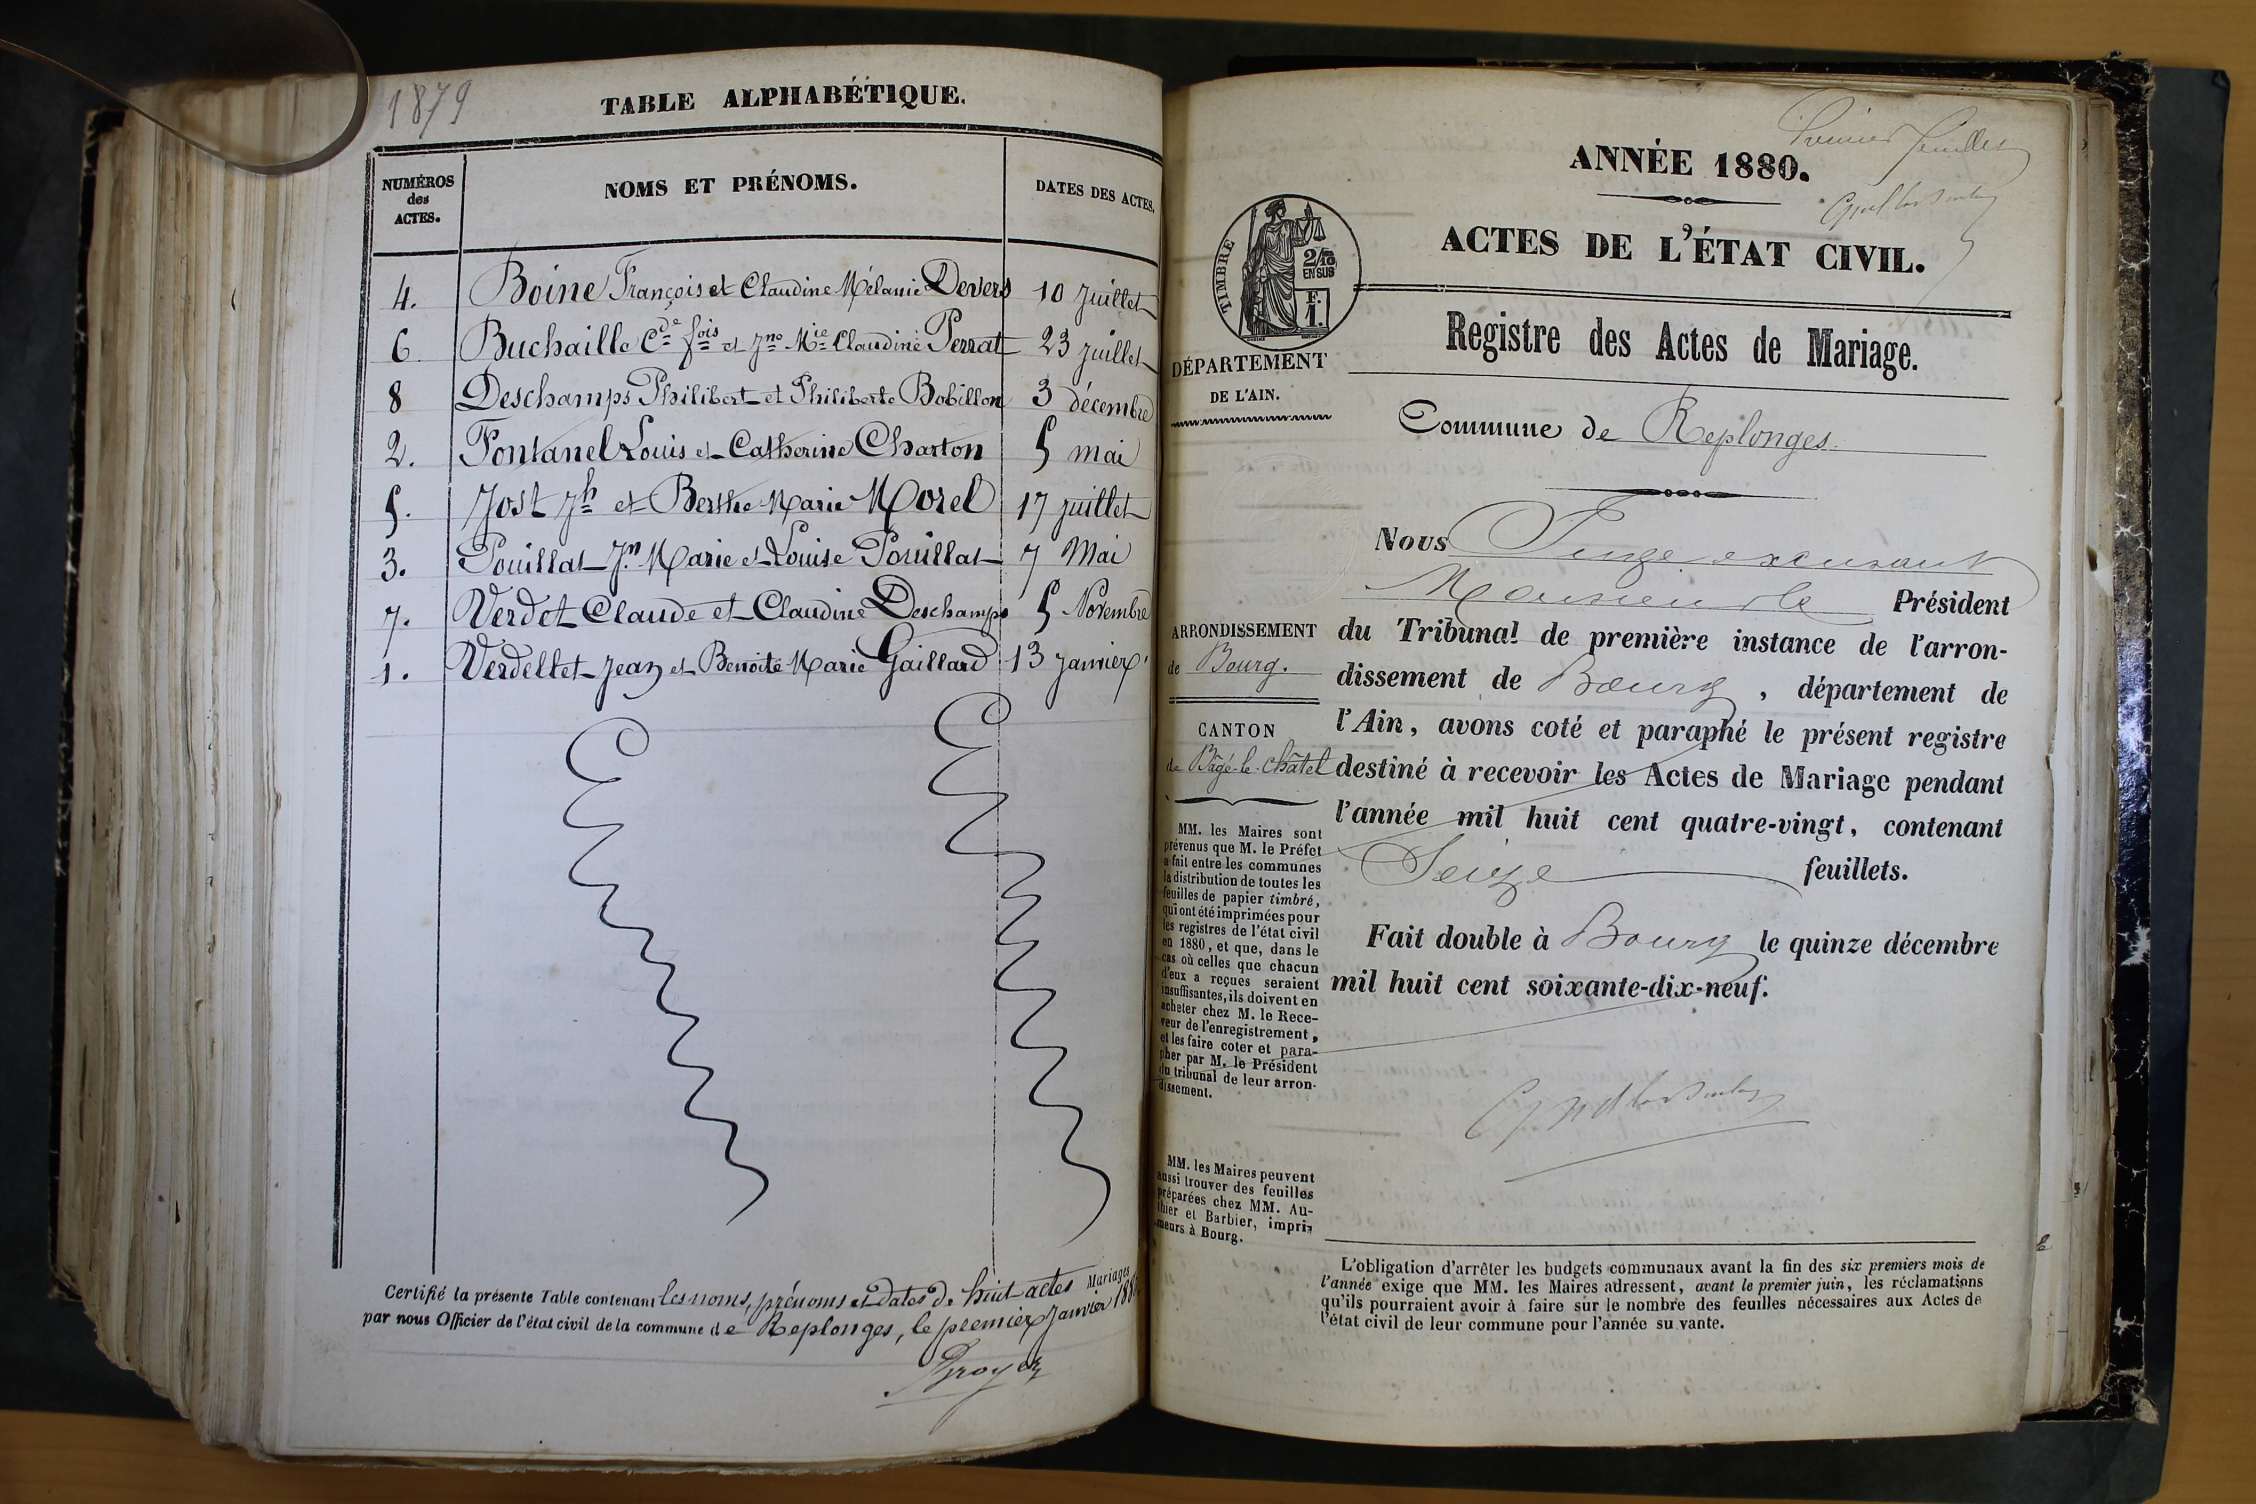 1879
TABLE ALPHABÉTIQUE.
NUMÉROS
des
ACTES.
NOMS ET PRÉNOMS.
DATES DES ACTES.
4. Boine François et Claudine Mélanie Devers 10 Juillet
6. Buchaille Cde fois et Jne Mie Claudine Perrat 23 juillet
8 Deschamps Philibert et Philiberte Bobillon 3 décembre
2. Fontanel Louis et Catherine Charton 5 mai
5. Jost Jh et Berthe Marie Morel 17 juillet
3. Pouillat Jn Marie et Louise Pouillat 7 Mai
7. Verdet Claude et Claudine Deschamps 5 Novembre
1. Verdellet Jean et Benoite Marie Gaillard 13 Janvier
Certifié la présente Table contenant les noms, prénoms et dates de huit actes Mariages
par nous Officier de l'état civil de la commune de Replonges, le premier Janvier
Premier feuillet
ANNÉE 1880.
ACTES DE L'ÉTAT CIVIL.
TIMBRE
2/10
EN SUS
F.
1.
Registre des Actes de Mariage.
DÉPARTEMENT
DE L'AIN.
Commune de Replonges.
ARRONDISSEMENT
de Bourg.
CANTON
de Bâgé-le-châtel
MM. les Maires sont
prévenus que M. le Préfet
a fait entre les communes
la distribution de toutes les
feuilles de papier timbré,
qui ont été imprimées pour
les registres de l'état civil
en 1880, et que, dans le
cas où celles que chacun
d'eux a reçues seraient
insuffisantes, ils doivent en
acheter chez M. le Rece-
veur de l'enregistrement,
et les faire coter et para-
pher par M. le Président
du tribunal de leur arron-
dissement.
MM. les Maires peuvent
aussi trouver des feuilles
préparées chez MM. Au-
thier et Barbier, impri-
meurs à Bourg.
Nous Juge excusant
Monsieur le Président
du Tribunal de première instance de l'arron-
dissement de Bourg, département de
l'Ain, avons coté et paraphé le présent registre
destiné à recevoir les Actes de Mariage pendant
l'année mil huit cent quatre-vingt, contenant
Seize feuillets.
Fait double à Bourg le quinze décembre
mil huit cent soixante-dix-neuf.
L'obligation d'arrêter les budgets communaux avant la fin des six premiers mois de
l'année exige que MM. les Maires adressent, avant le premier juin, les réclamations
qu'ils pourraient avoir à faire sur le nombre des feuilles nécessaires aux Actes de
l'état civil de leur commune pour l'année su vante.